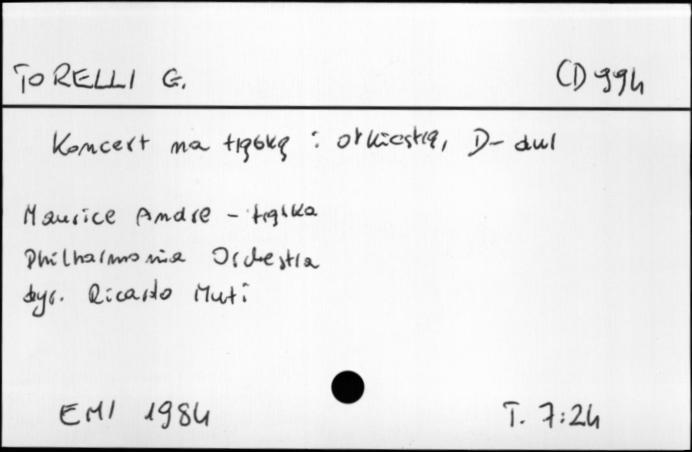 TORELLI G. CD 994
Koncert na trąbkę i orkiestrę, D-dur
Maurice Andre - trąbka
Philharmonia Orchestra
dyr. Ricardo Muti
EMI 1984 T. 7:24